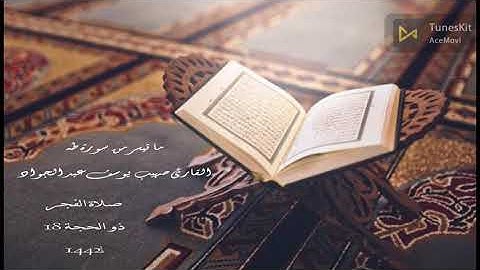 TunesKit
AceMovi
ما تيسر من سورة طه
القارئ صهيب يوسف عبدالجواد
صلاة الفجر
18 ذو الحجة
1442